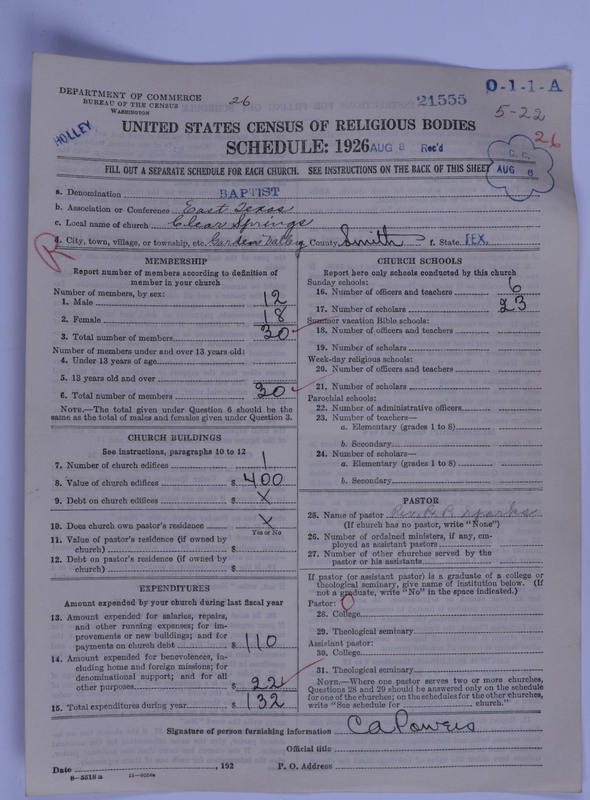 DEPARTMENT OF COMMERCE
BUREAU OF THE CENSUS
WASHINGTON
26
21555
O-1-1-A
5-22
26
HOLLEY
UNITED STATES CENSUS OF RELIGIOUS BODIES
SCHEDULE: 1926
AUG 8 Rec'd
C. C.
AUG 6
FILL OUT A SEPARATE SCHEDULE FOR EACH CHURCH. SEE INSTRUCTIONS ON THE BACK OF THIS SHEET
a. Denomination BAPTIST
b. Association or Conference East Texas
c. Local name of church Clear Springs
d. City, town, village, or township, etc. Garden Valley County Smith f. State TEX.
R
MEMBERSHIP
Report number of members according to definition of
member in your church
Number of members, by sex:
1. Male 12
2. Female 18
3. Total number of members 30
Number of members under and over 13 years old:
4. Under 13 years of age
5. 13 years old and over
6. Total number of members 30
NOTE.—The total given under Question 6 should be the
same as the total of males and females given under Question 3.
CHURCH BUILDINGS
See instructions, paragraphs 10 to 12
7. Number of church edifices 1
8. Value of church edifices $ 400
9. Debt on church edifices $ X
10. Does church own pastor's residence X
Yes or No
11. Value of pastor's residence (if owned by
church) $
12. Debt on pastor's residence (if owned by
church) $
EXPENDITURES
Amount expended by your church during last fiscal year
13. Amount expended for salaries, repairs,
and other running expenses; for im-
provements or new buildings; and for
payments on church debt $ 110
14. Amount expended for benevolences, in-
cluding home and foreign missions; for
denominational support; and for all
other purposes $ 22
15. Total expenditures during year $ 132
CHURCH SCHOOLS
Report here only schools conducted by this church
Sunday schools:
16. Number of officers and teachers 6
17. Number of scholars 23
Summer vacation Bible schools:
18. Number of officers and teachers
19. Number of scholars
Week-day religious schools:
20. Number of officers and teachers
21. Number of scholars
Parochial schools:
22. Number of administrative officers
23. Number of teachers—
a. Elementary (grades 1 to 8)
b. Secondary
24. Number of scholars—
a. Elementary (grades 1 to 8)
b. Secondary
PASTOR
25. Name of pastor Rev. Sparks
(If church has no pastor, write "None")
26. Number of ordained ministers, if any, em-
ployed as assistant pastors
27. Number of other churches served by the
pastor or his assistants
If pastor (or assistant pastor) is a graduate of a college or
theological seminary, give name of institution below. (If
not a graduate, write "No" in the space indicated.)
Pastor: 0
28. College
29. Theological seminary
Assistant pastor:
30. College
31. Theological seminary
NOTE.—Where one pastor serves two or more churches,
Questions 28 and 29 should be answered only on the schedule
for one of the churches; on the schedules for the other churches,
write "See schedule for church."
Signature of person furnishing information C A Powers
Official title
Date , 192 P. O. Address
8-5518 a